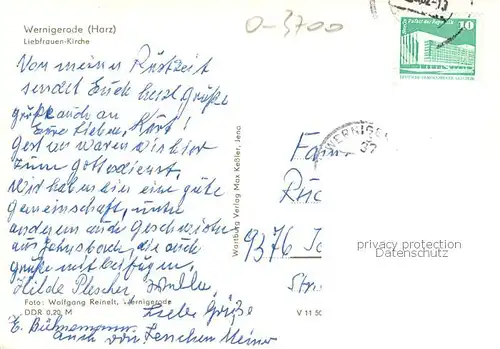 Wernigerode (Harz)
Liebfrauen-Kirche
0-3700
10
Von meiner Rüstzeit
sendet Euch herzl. Grüße
grüßt auch an
Eure Lieben,
Gestern waren wir hier
zum Gottesdienst.
Wir haben hier eine gute
Gemeinschaft, unter
anderem auch Geschwister
aus Jahnsbach, die auch
Grüße mit beifügen.
Hilde Plescher,
Liebe Grüße
E. Bühnemann
auch von
Foto: Wolfgang Reinelt, Wernigerode
DDR 0,20 M
Wartburg Verlag Max Keßler, Jena
V 11 50
WERNIGE
37
Fam
9376
Str
protection copyright
Datenschutz